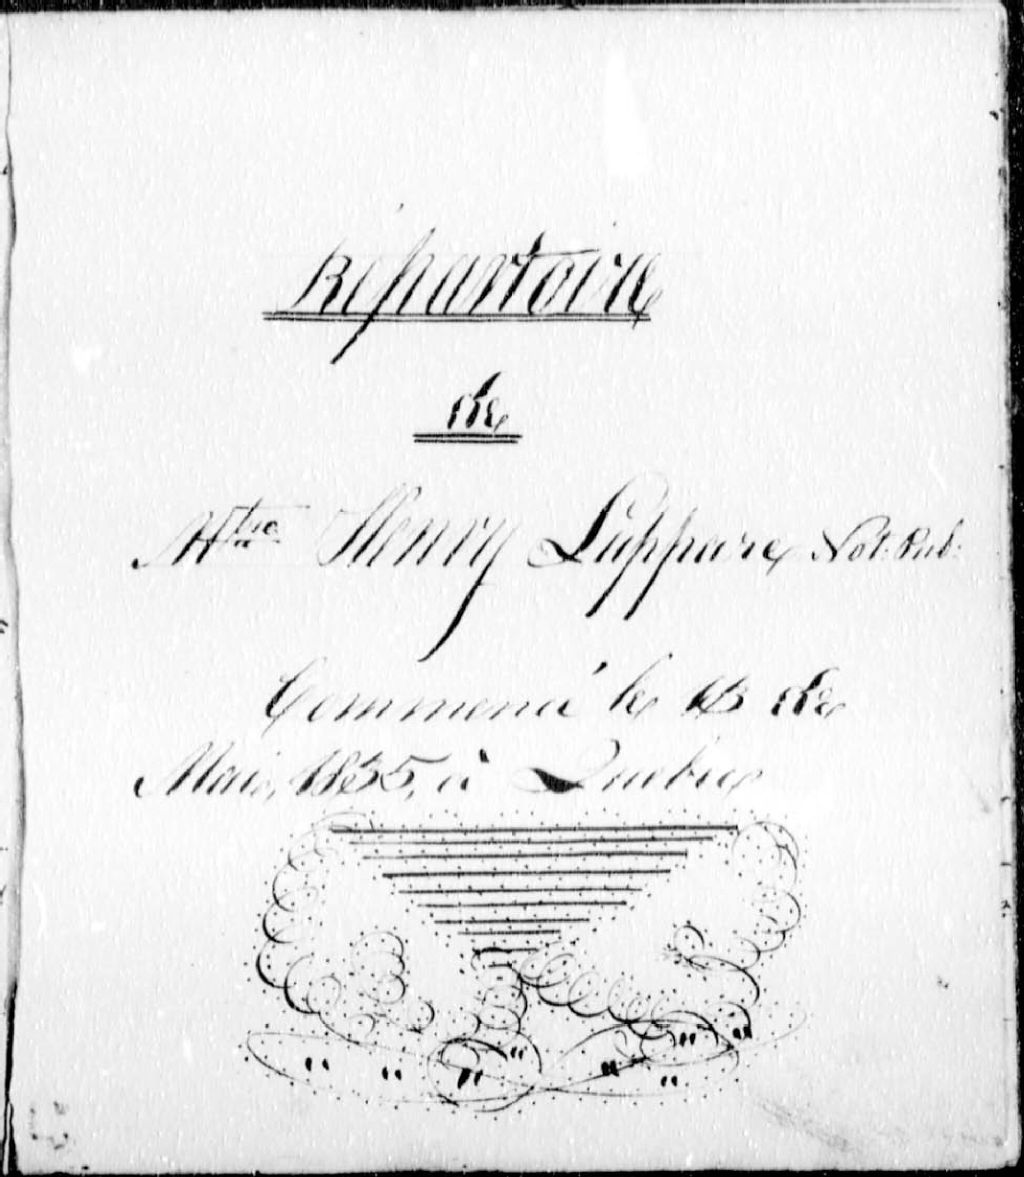 Répertoire
de
Mtre Henry Lappare, Not. Pub:
Commencé le 13 de
Mai, 1835, à Québec